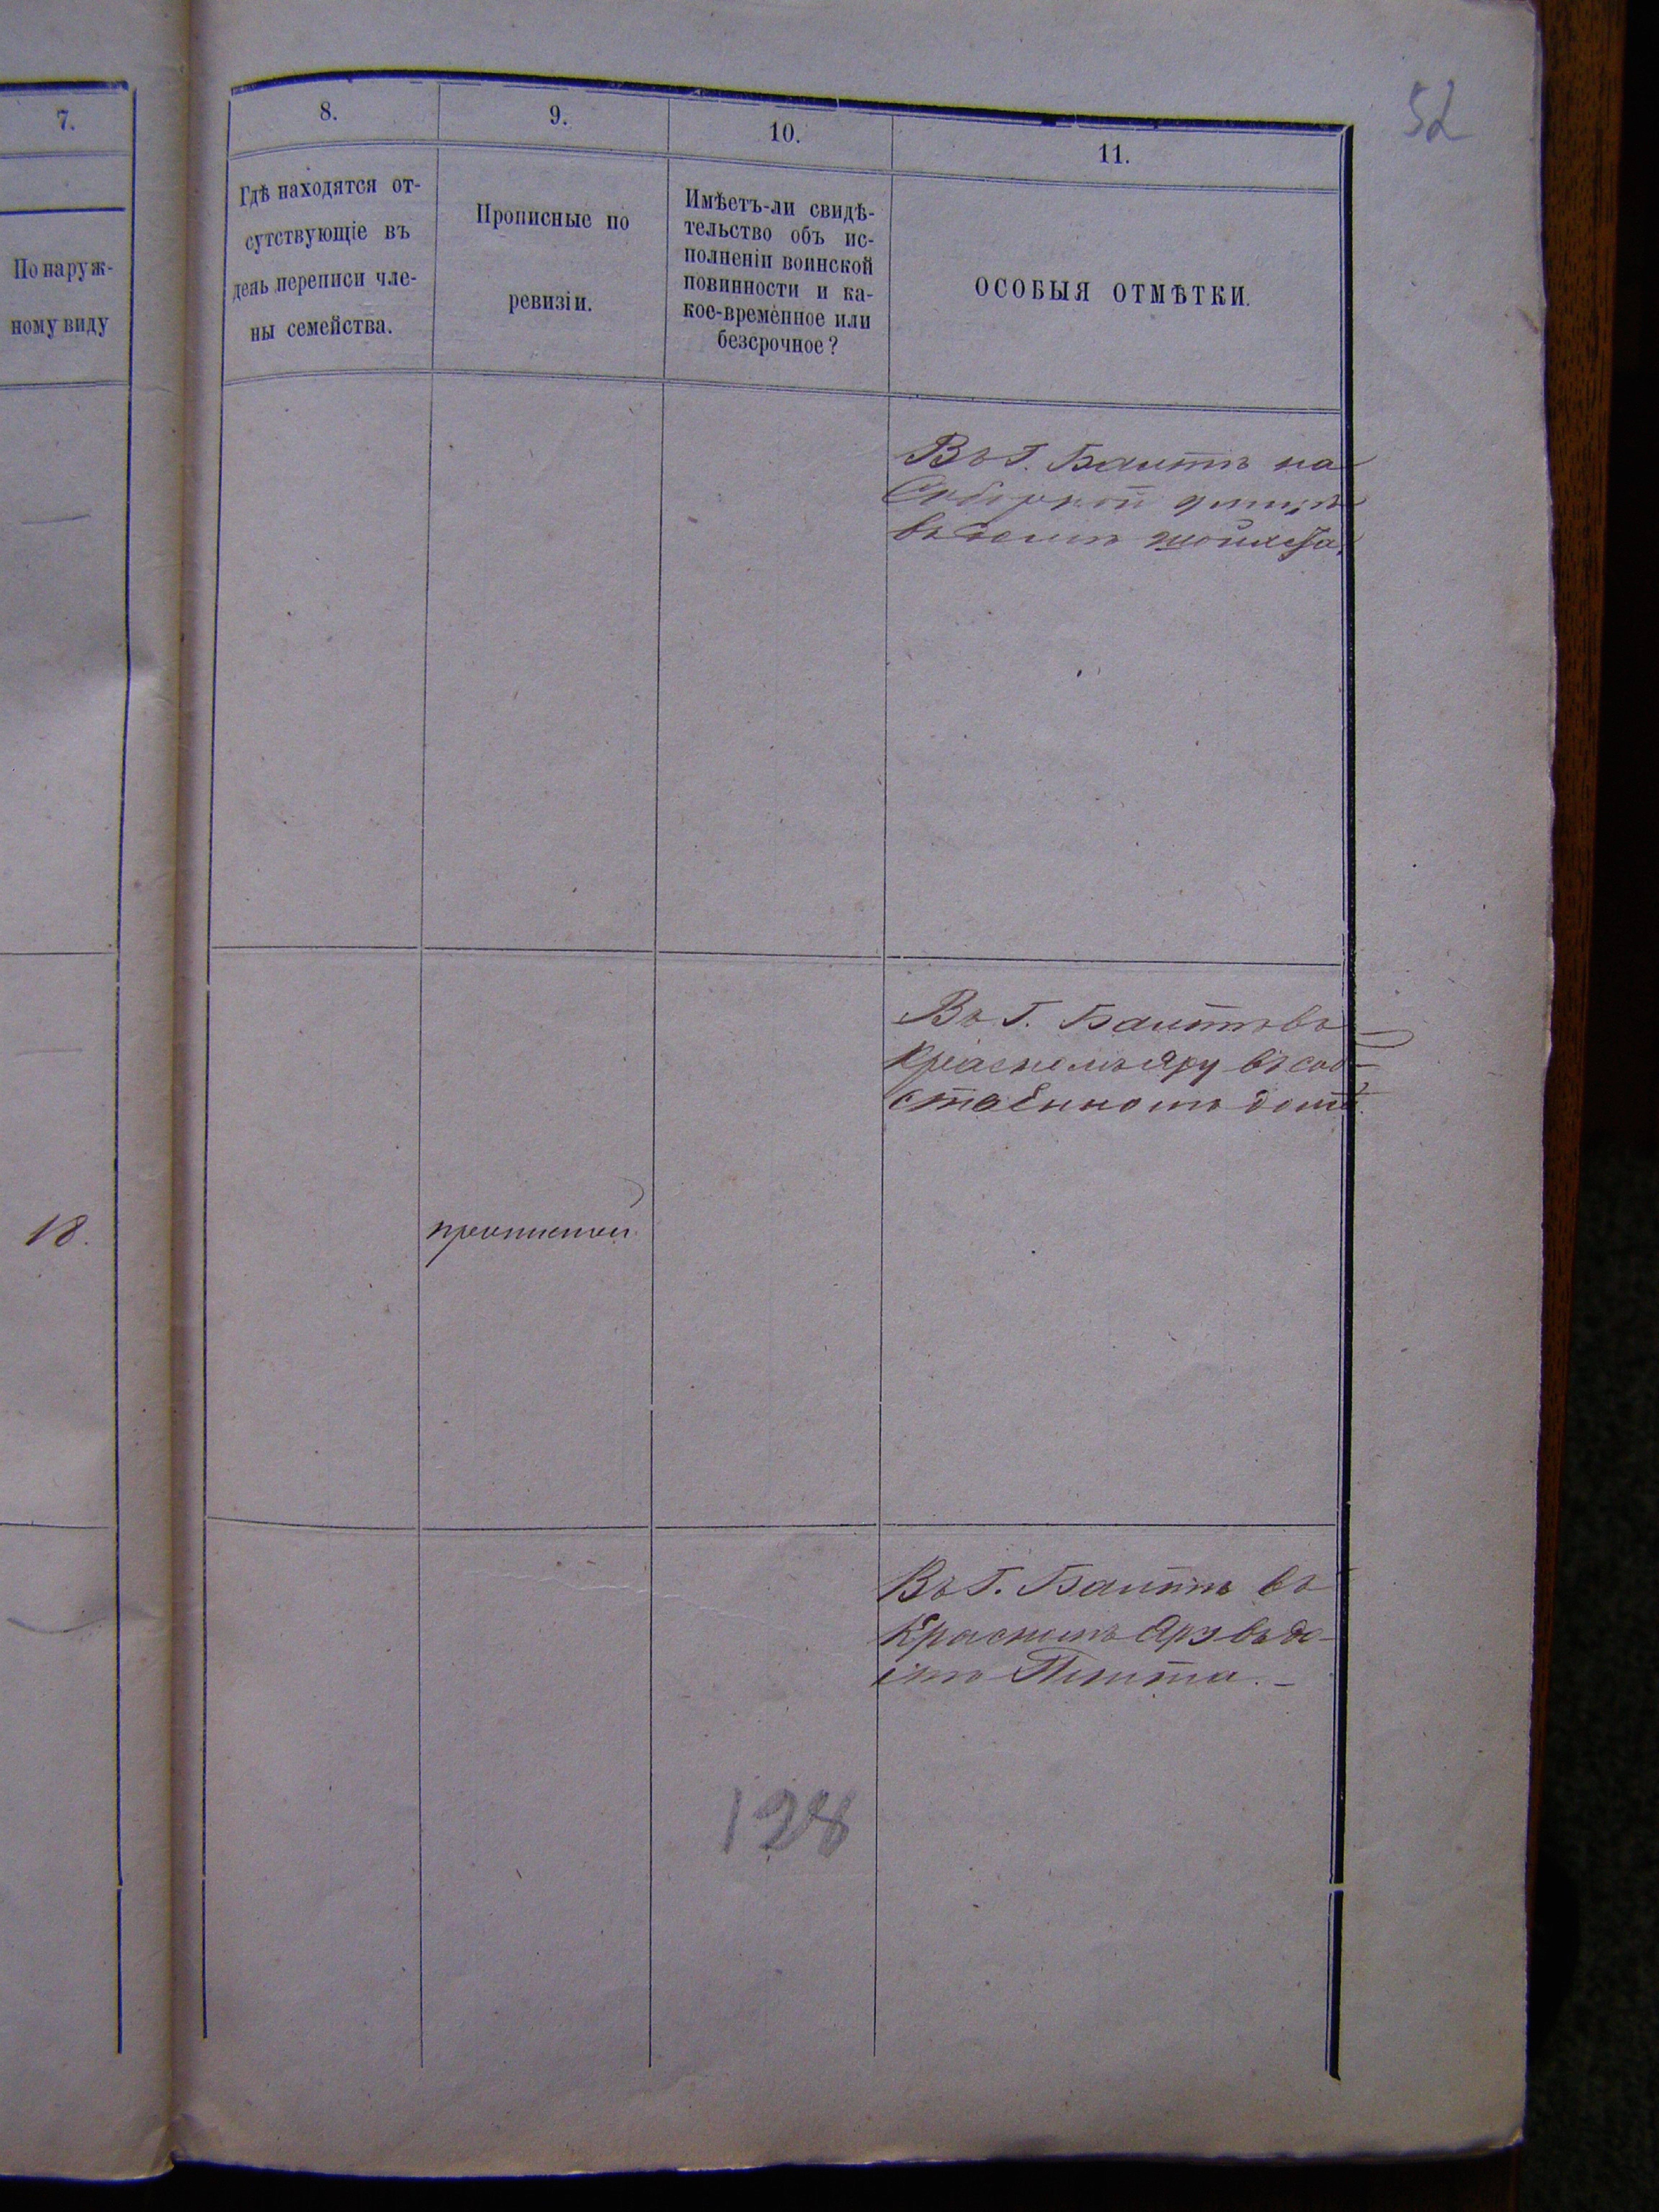 52
7.
8.
9.
10.
11.
По наруж-
ному виду
Гдѣ находятся от-
сутствующіе въ
день переписи чле-
ны семейства.
Прописные по
ревизіи.
Имѣетъ-ли свидѣ-
тельство объ ис-
полненіи воинской
повинности и ка-
кое-временное или
безсрочное?
ОСОБЫЯ ОТМѢТКИ.
Въ Г. Балтѣ на
въ домѣ
Въ Г. Балтѣ въ
Красномъ Яру въ соб-
ственномъ домѣ.
18.
прописной
Въ Г. Балтѣ въ
Красномъ Яру въ до-
мѣ
128